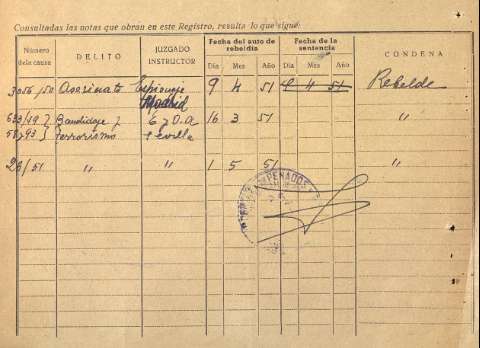 Consultadas las notas que obran en este Registro, resulta lo que sigue:
Número de la causa DELITO JUZGADO INSTRUCTOR Fecha del auto de rebeldía Fecha de la sentencia CONDENA
Día Mes Año Día Mes Año
3056/50 Asesinato Espionaje Madrid 9 4 51 9 4 51 Rebelde
Bandidaje y 6 16 3 51 "
Terrorismo Sevilla
26/51 " " 1 5 51 "
PENADOS